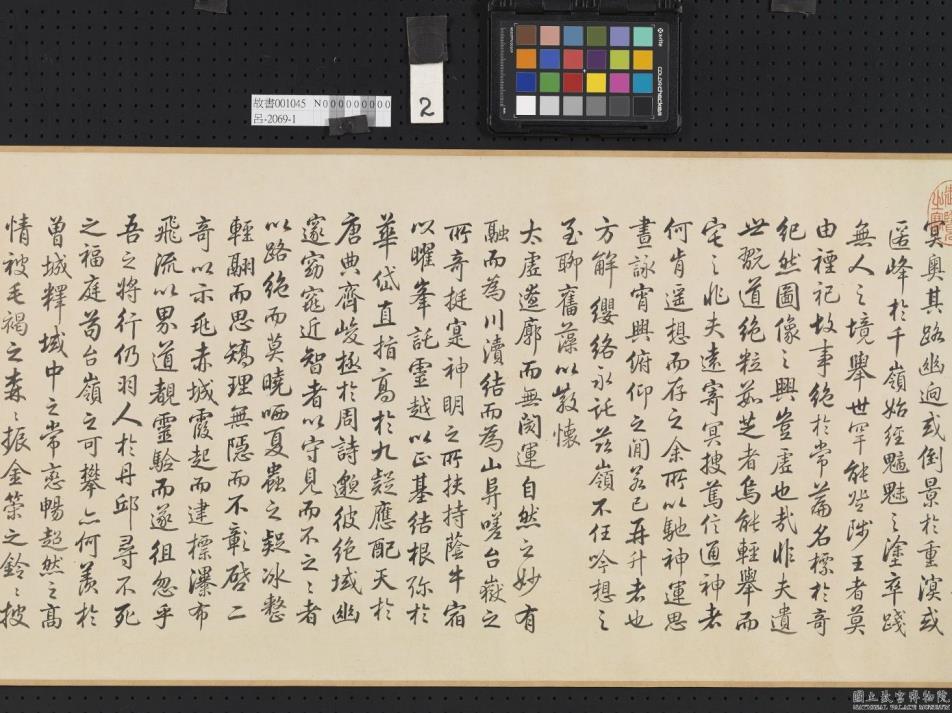 冥奧其路幽迥或倒景於重溟或
匿峰於千嶺始經魑魅之塗卒踐
無人之境舉世罕能登陟王者莫
由禋祀故事絕於常篇名標於奇
紀然圖像之興豈虛也哉非夫遺
世翫道絕粒茹芝者烏能輕舉而
宅之非夫遠寄冥搜篤信通神者
何肯遥想而存之余所以馳神運思
晝詠宵興俯仰之間若已再升者也
方解纓絡永託茲嶺不任吟想之
至聊奮藻以散懷
太虛遼廓而無閡運自然之妙有
融而為川瀆結而為山阜嗟台嶽之
所奇挺寔神明之所扶持蔭牛宿
以曜峯託靈越以正基結根弥於
華岱直指高於九疑應配天於
唐典齊峻極於周詩邈彼絕域幽
邃窈窕近智者以守見而不之〻者
以路絕而莫曉哂夏蟲之疑冰整
輕翮而思矯理無隱而不彰啓二
奇以示兆赤城霞起而建標瀑布
飛流以界道覩靈驗而遂徂忽乎
吾之將行仍羽人於丹邱尋不死
之福庭苟台嶺之可攀亦何羨於
曾城釋域中之常戀暢超然之高
情被毛褐之森〻振金策之鈴〻披
故書001045 N000000000
呂-2069-1
2
國立故宮博物院
NATIONAL PALACE MUSEUM